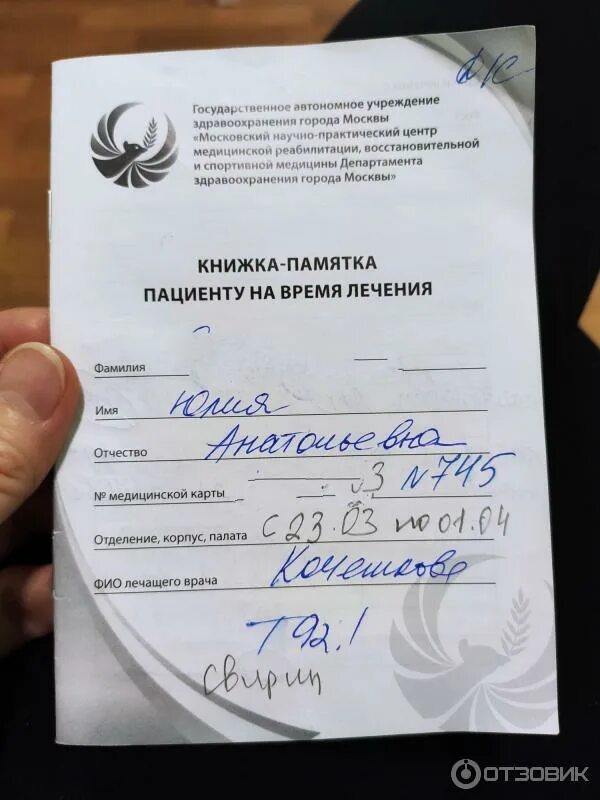 ДК
Государственное автономное учреждение
здравоохранения города Москвы
«Московский научно-практический центр
медицинской реабилитации, восстановительной
и спортивной медицины Департамента
здравоохранения города Москвы»
КНИЖКА-ПАМЯТКА
ПАЦИЕНТУ НА ВРЕМЯ ЛЕЧЕНИЯ
Фамилия
Имя Юлия
Отчество Анатольевна
№ медицинской карты 3 N745
Отделение, корпус, палата с 23.03 по 01.04
ФИО лечащего врача
Т92.1
ОТЗОВИК